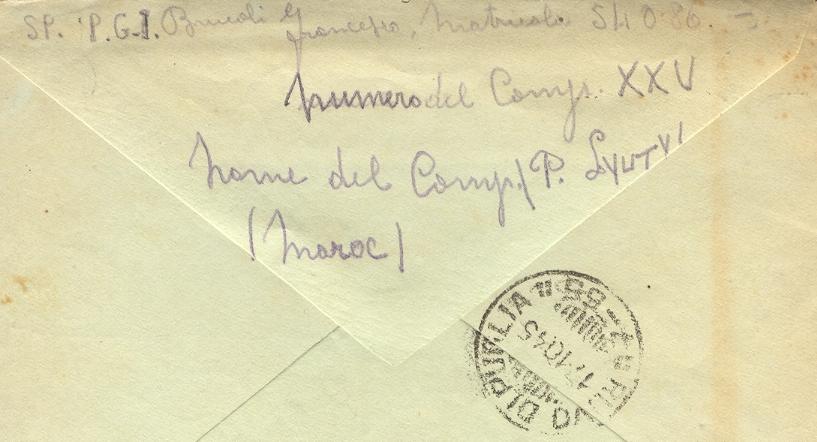 SP. P.G.I. Brucoli Francesco, Matricola 54080. =
Numero del Camp. XXV
Nome del Camp./P. Lyutyi
(Maroc)
DI PUGLIA
17.10.45